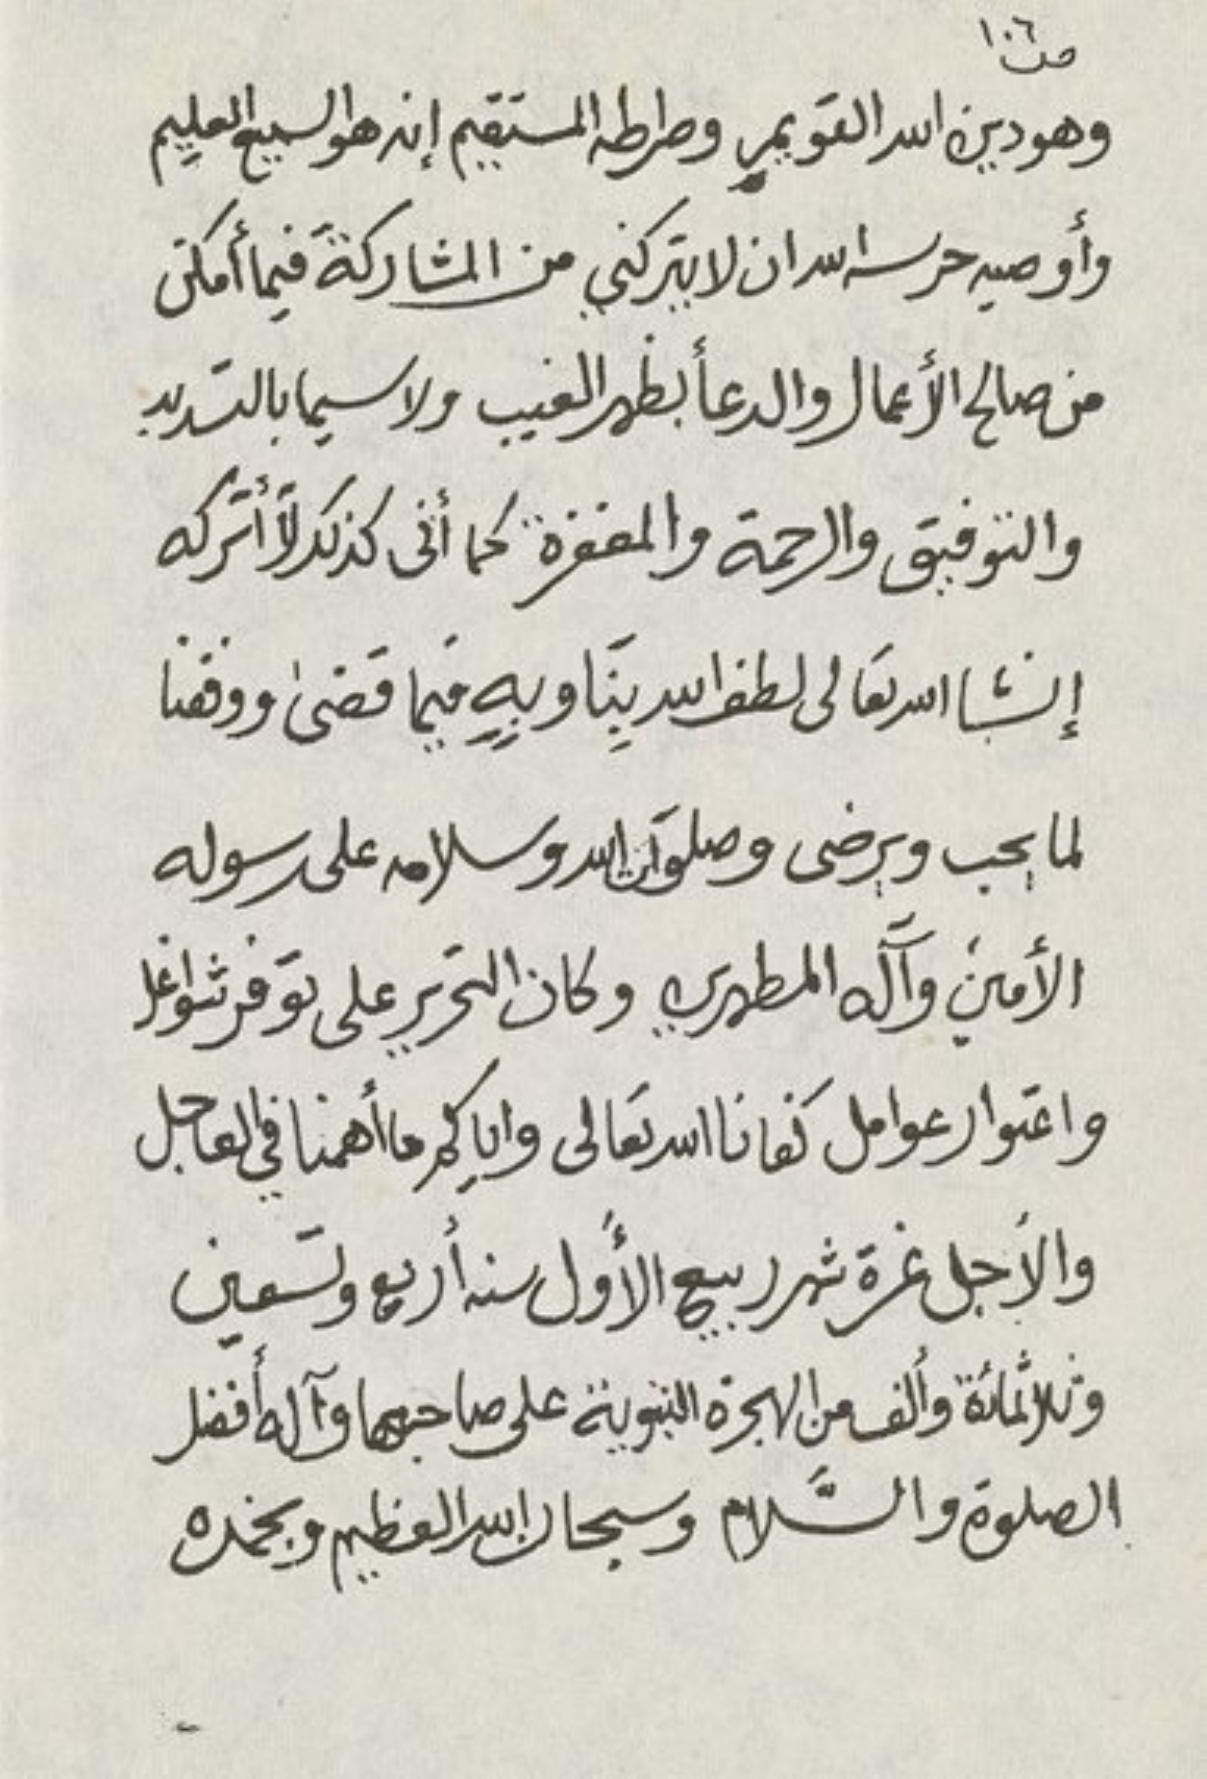 ص ١٠٦
وهو دين الله القويم وصراطه المستقيم إنه هو السميع العليم
وأوصيه حرسه الله ان لا يتركني من المشاركة فيما أمكن
من صالح الأعمال والدعأ بظهر الغيب ولا سيما بالتسديد
والتوفيق والرحمة والمغفرة كما أني كذلك لا أتركه
إنشا الله تعالى لطف الله بنا وبه فيما قضى ووفقنا
لما يحب ويرضى وصلوات الله وسلامه على رسوله
الأمين وآله المطهرين وكان التحرير على توفر شواغل
واعتوار عوامل كفانا الله تعالى واياكم ما أهمنا في العاجل
والآجل غرة شهر ربيع الأول سنه أربع وتسعين
وثلاثمائة وألف من الهجرة النبوية على صاحبها وآله أفضل
الصلوة والسَّلام وسبحان الله العظيم وبحمده